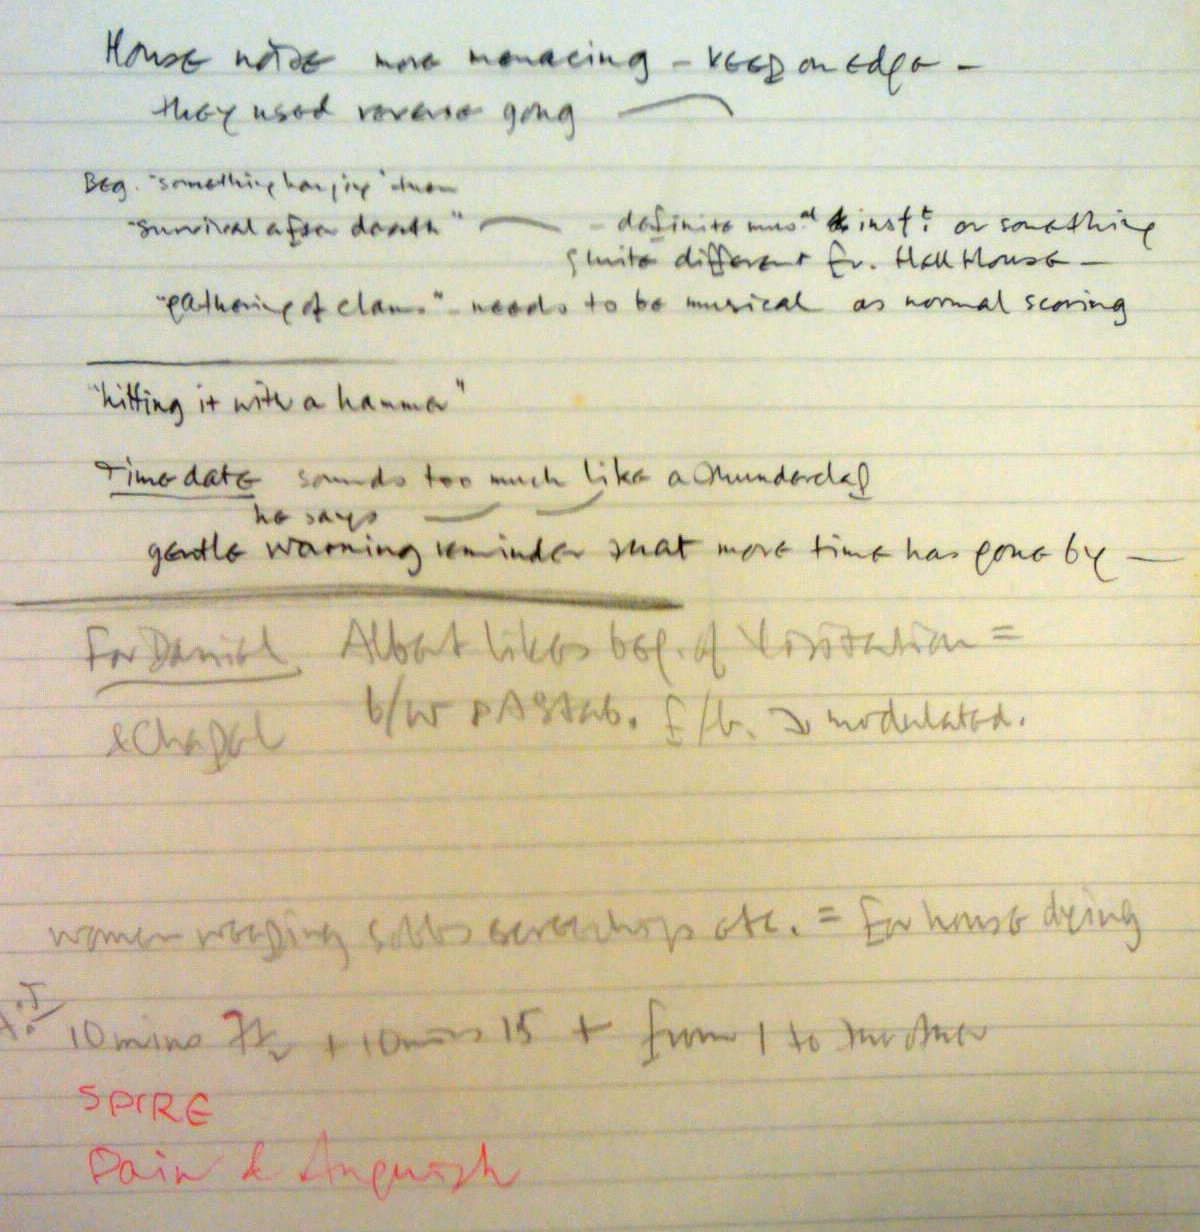 House noise more menacing - keep on edge -
they used reverse gong
Beg. "something hanging" then
"survival after death" - definite mus^al & inst^t. or something
quite different fr. Hell House -
"gathering of clans" - needs to be musical as normal scoring
"hitting it with a hammer"
Time date sounds too much like a thunderclap
he says
gentle warning reminder that more time has gone by -
For Daniel Albert likes beg. of Visitation =
b/w f/b. modulated.
& Chapel
women weeping sobs etc. = for house dying
10 mins 7½ + 10 mins 15 + from 1 to the other
SPIRE
Pain & Anguish